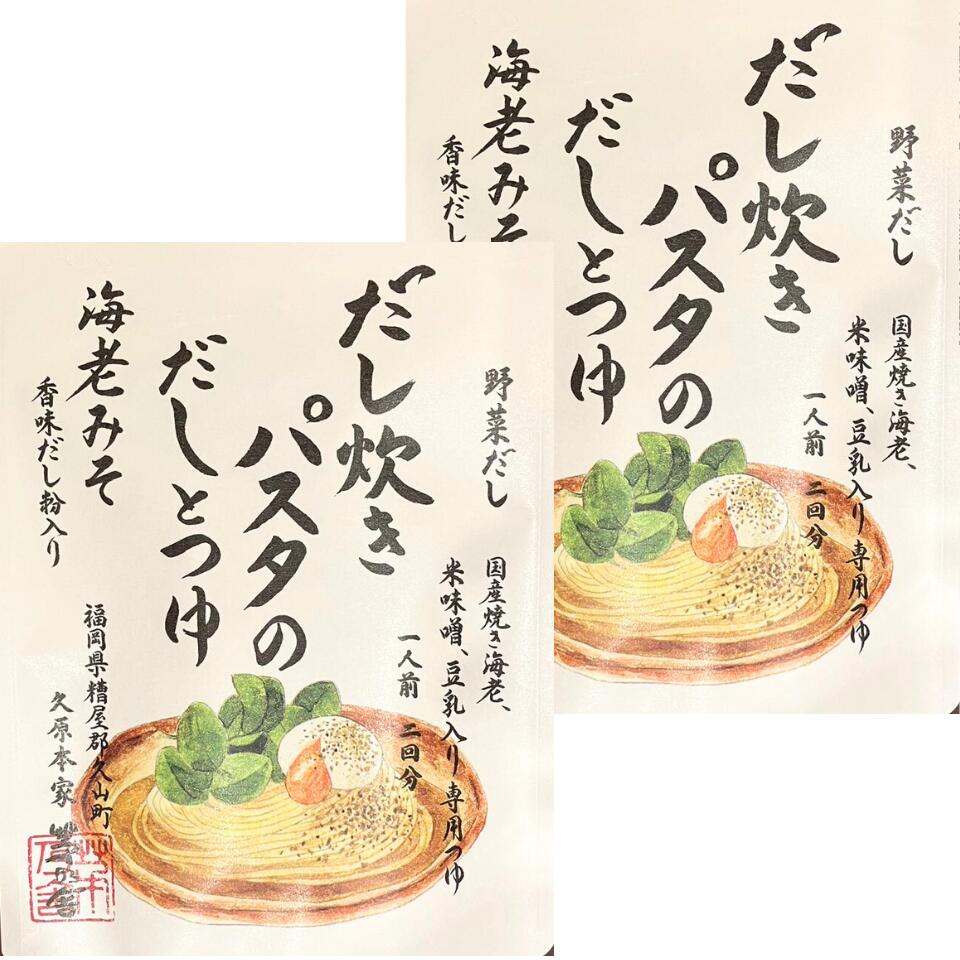 野菜だし
だし炊き
パスタの
だしとつゆ
海老みそ
香味だし
国産焼き海老、
米味噌、豆乳入り 専用つゆ
一人前 二回分
野菜だし
だし炊き
パスタの
だしとつゆ
海老みそ
香味だし粉入り
国産焼き海老、
米味噌、豆乳入り 専用つゆ
一人前 二回分
福岡県糟屋郡久山町
久原本家 茅乃舎